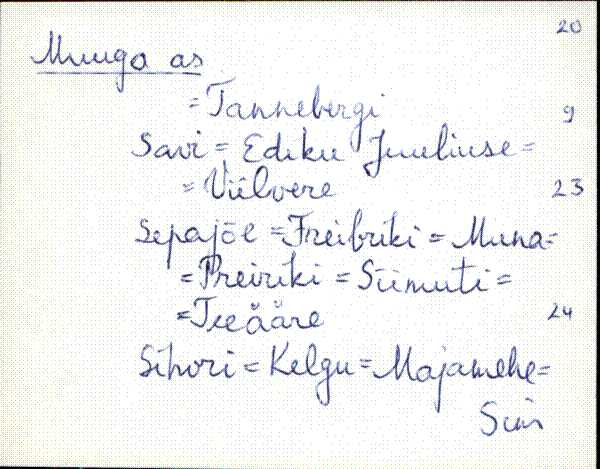 20
Muuga as
= Tannebergi 9
Savi = Ediku Juuliuse =
= Viilvere 23
Sepajõe = Freibriki = Muna =
= Preiriki = Siimuti =
= Teeääre 24
Sihvri = Kelgu = Majamehe =